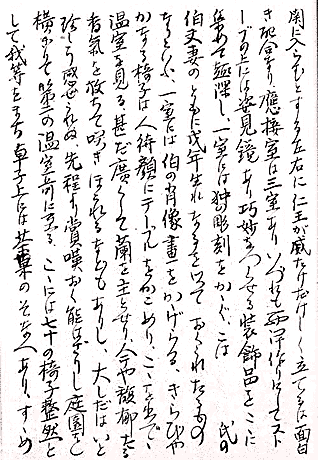 関に入らむとする左右に仁王が威たけだけしく立てるは面白
き配合なり應接室は三室ありいづれも西洋作りにしてスト
ーブの上には姿見鏡あり巧妙をつくせる装飾品をこゝに
集めて趣深し、一室には狗の彫刻をかゝぐ、こは 氏の
伯丈妻のともに戌年生れなるを以ておくられたるもの
なりといふ、一室には伯の肖像畫をかげらる、きらびや
かなる椅子は人待顔にテーブルをかこめり、こゝを出で、
温室を見る、甚だ廣くして蘭を主とせり、今や馥郁たる
香氣を放ちて咲きほこれるなどもありし、大しだはいと
珍らし感ぜられぬ、先程より賞嘆おく能はざりし庭園を
横ぎりて第一の温室前に來る、こゝには七十の椅子整然と
して我等をまち卓子上には茶菓のそなへあり、すゝめ